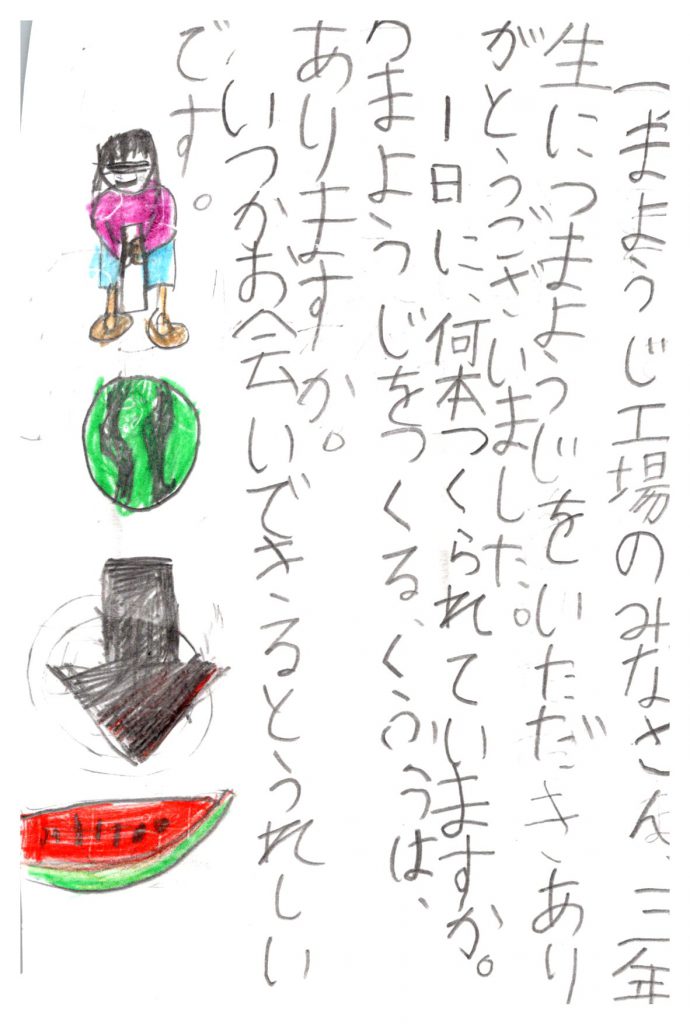 つまようじ工場のみなさん、三年
生につまようじをいただきあり
がとうございました。
1日に、何本つくられていますか。
つまようじをつくる、くふうは、
ありますか。
いつかお会いできるとうれしい
です。